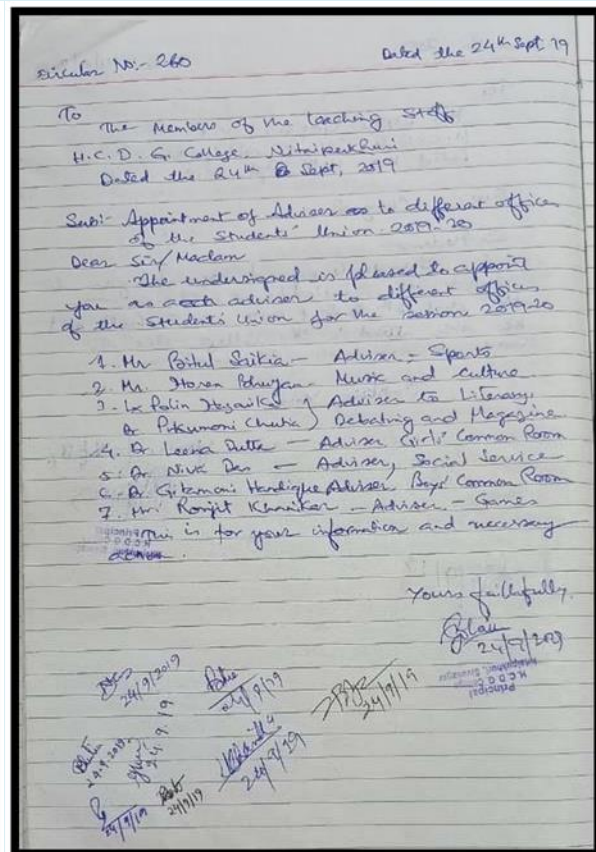 Circular No:- 260
Dated the 24th Sept 19
To
The Members of the teaching Staff
H.C.D.G. College, Nitaipukhuri
Dated the 24th Sept, 2019
Sub:- Appointment of Adviser to different offices
of the Students' Union 2019-20
Dear Sir/Madam
The undersigned is pleased to appoint
you as adviser to different offices
of the Students Union for the session 2019-20
1. Mr Saikia - Adviser - Sports
2. Mr. Horen Bhuyan - Music and Culture
3. Hazarika } Adviser to Literary,
Dr Chutia } Debating and Magazine
4. Dr Leena Dutta - Adviser Girls' Common Room
5. Dr Niva Das - Adviser, Social Service
6. Dr. Gitamoni Handique Adviser, Boys' Common Room
7. Mr. Ronjit - Adviser - Games
This is for your information and necessary
action.
Yours faithfully,
24/9/2019
Principal
H.C.D.G. College
24/9/2019
24/9/19
24/9/19
24.9.2019
24.9.19
24/9/19
24/9/19
24/9/19